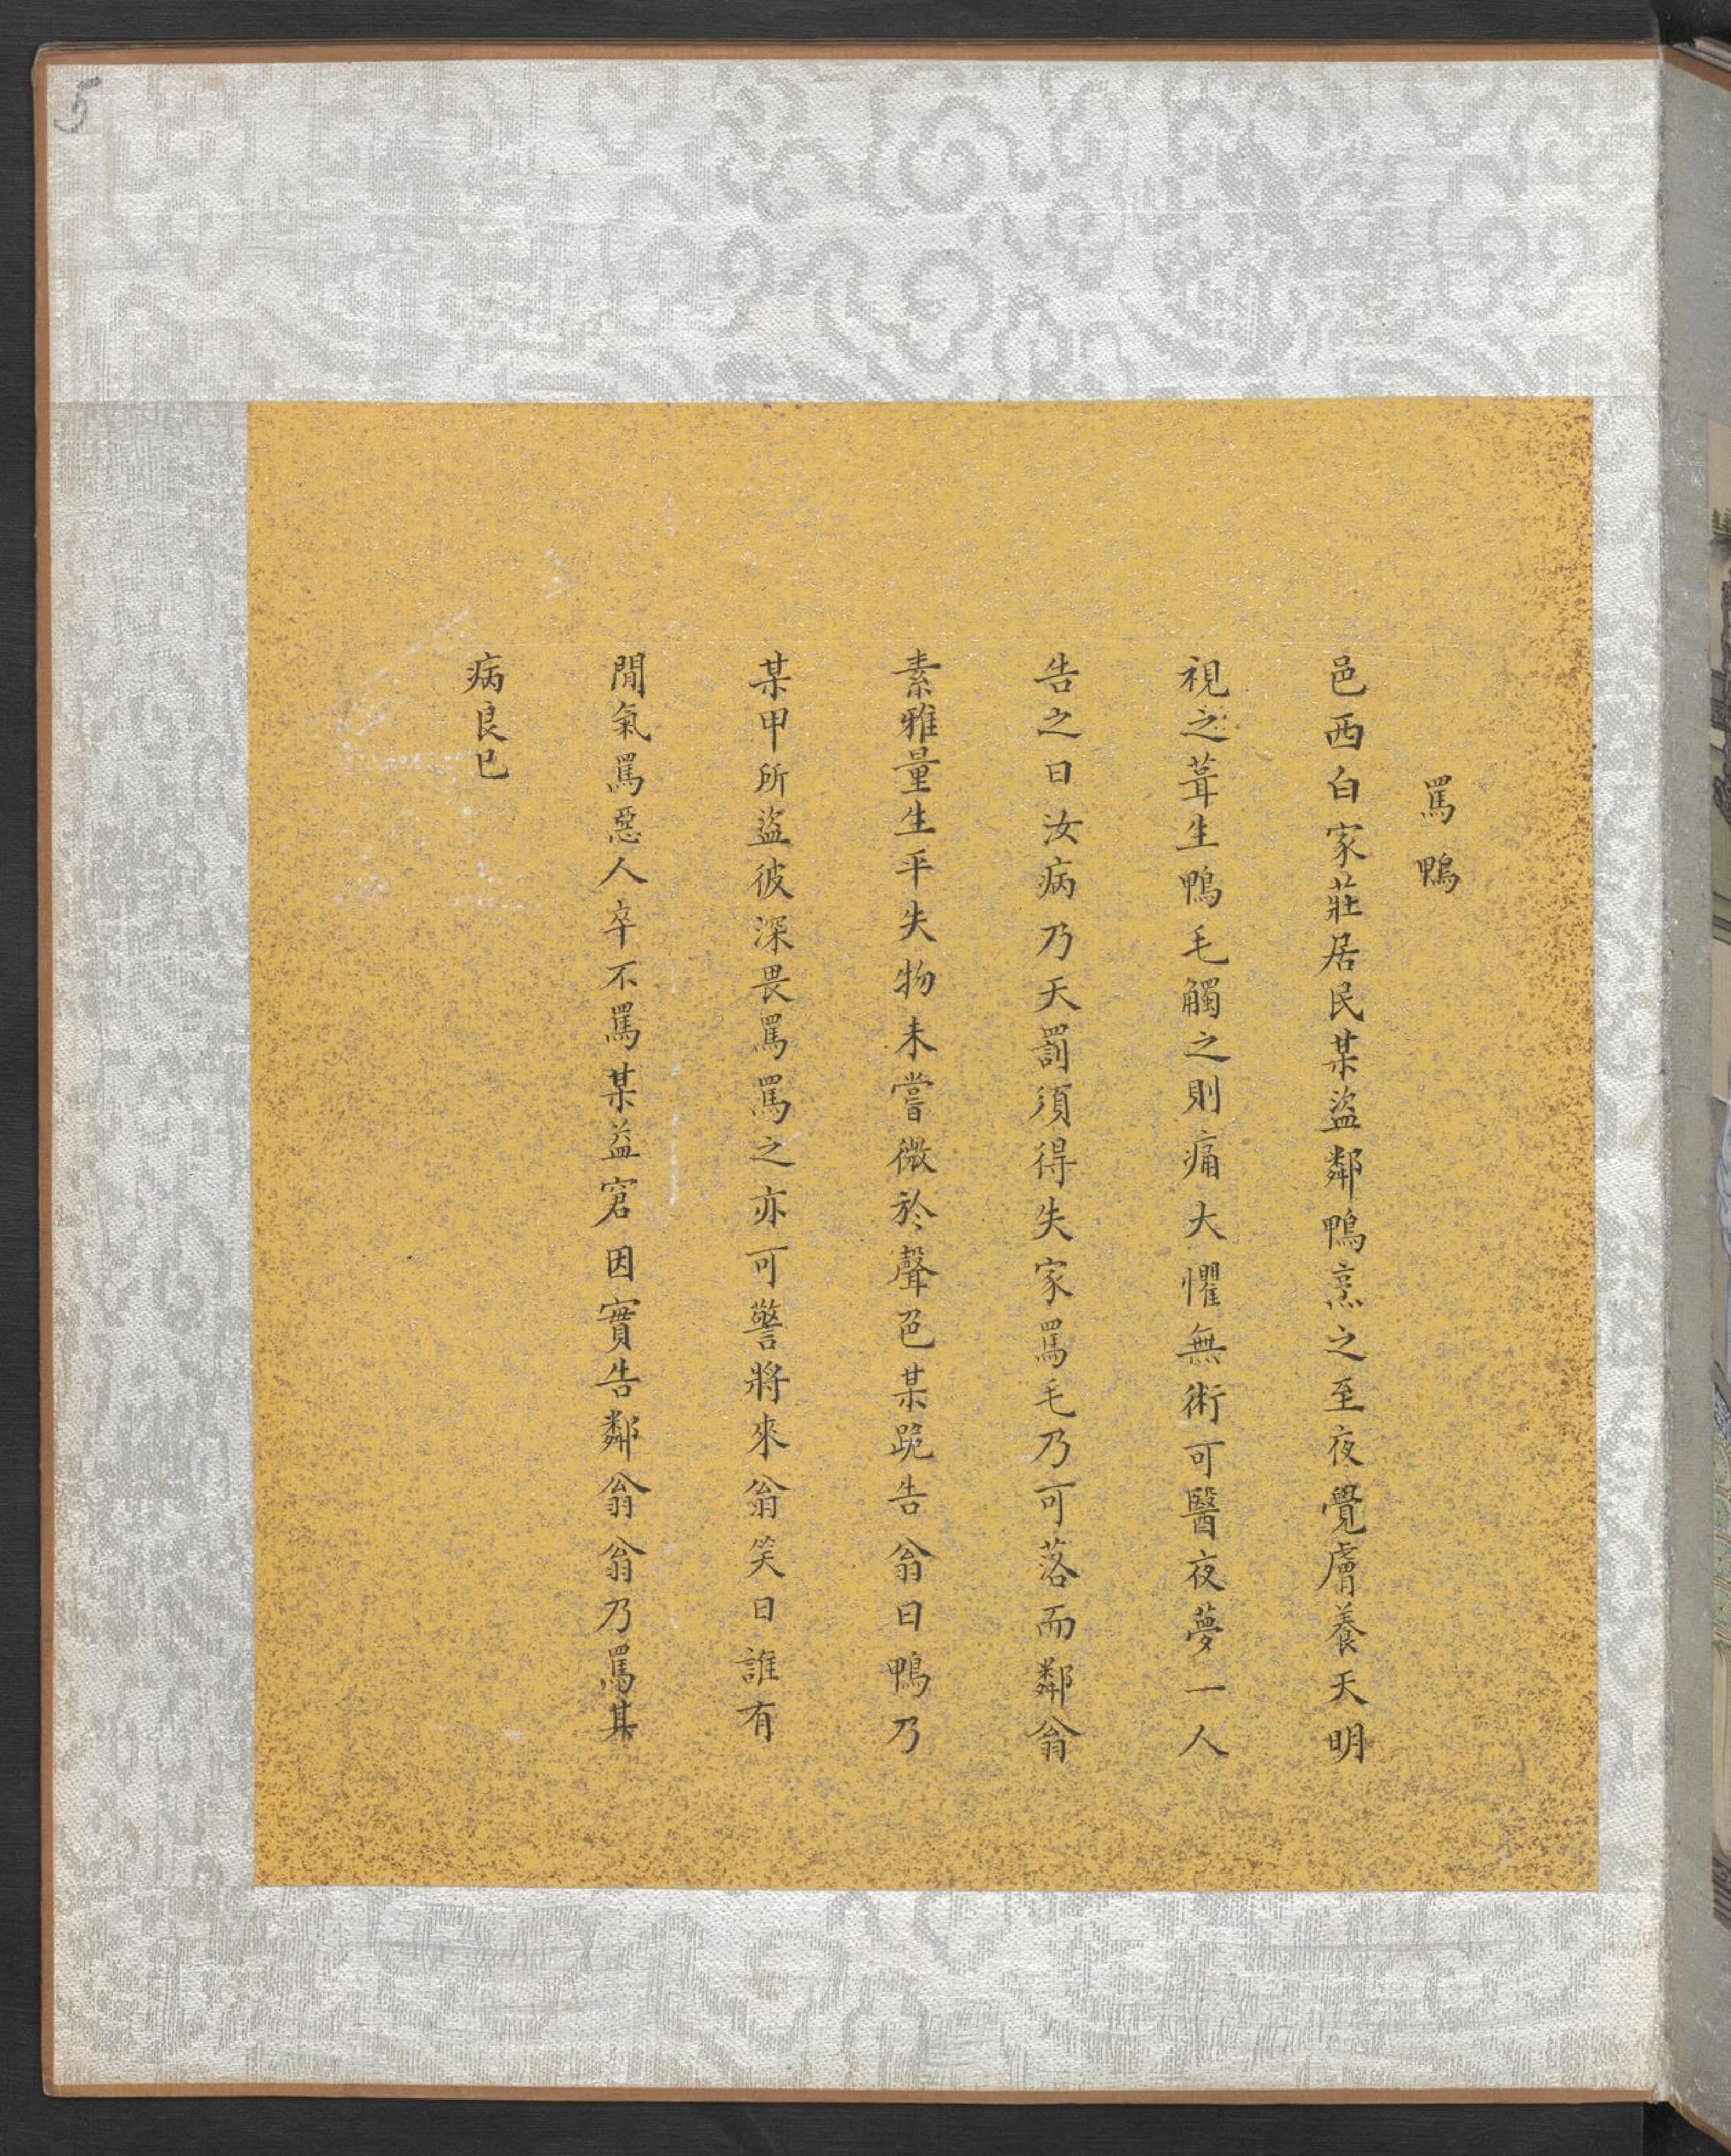 5
罵鴨
邑西白家莊居民某盜鄰鴨烹之至夜覺膚養天明
視之葺生鴨毛觸之則痛大懼無術可醫夜夢一人
告之曰汝病乃天罰須得失家罵毛乃可落而鄰翁
素雅量生平失物未嘗徵於聲色某跪告翁曰鴨乃
某甲所盜彼深畏罵罵之亦可警將來翁笑曰誰有
閒氣罵惡人卒不罵某益窘因實告鄰翁翁乃罵其
病良已